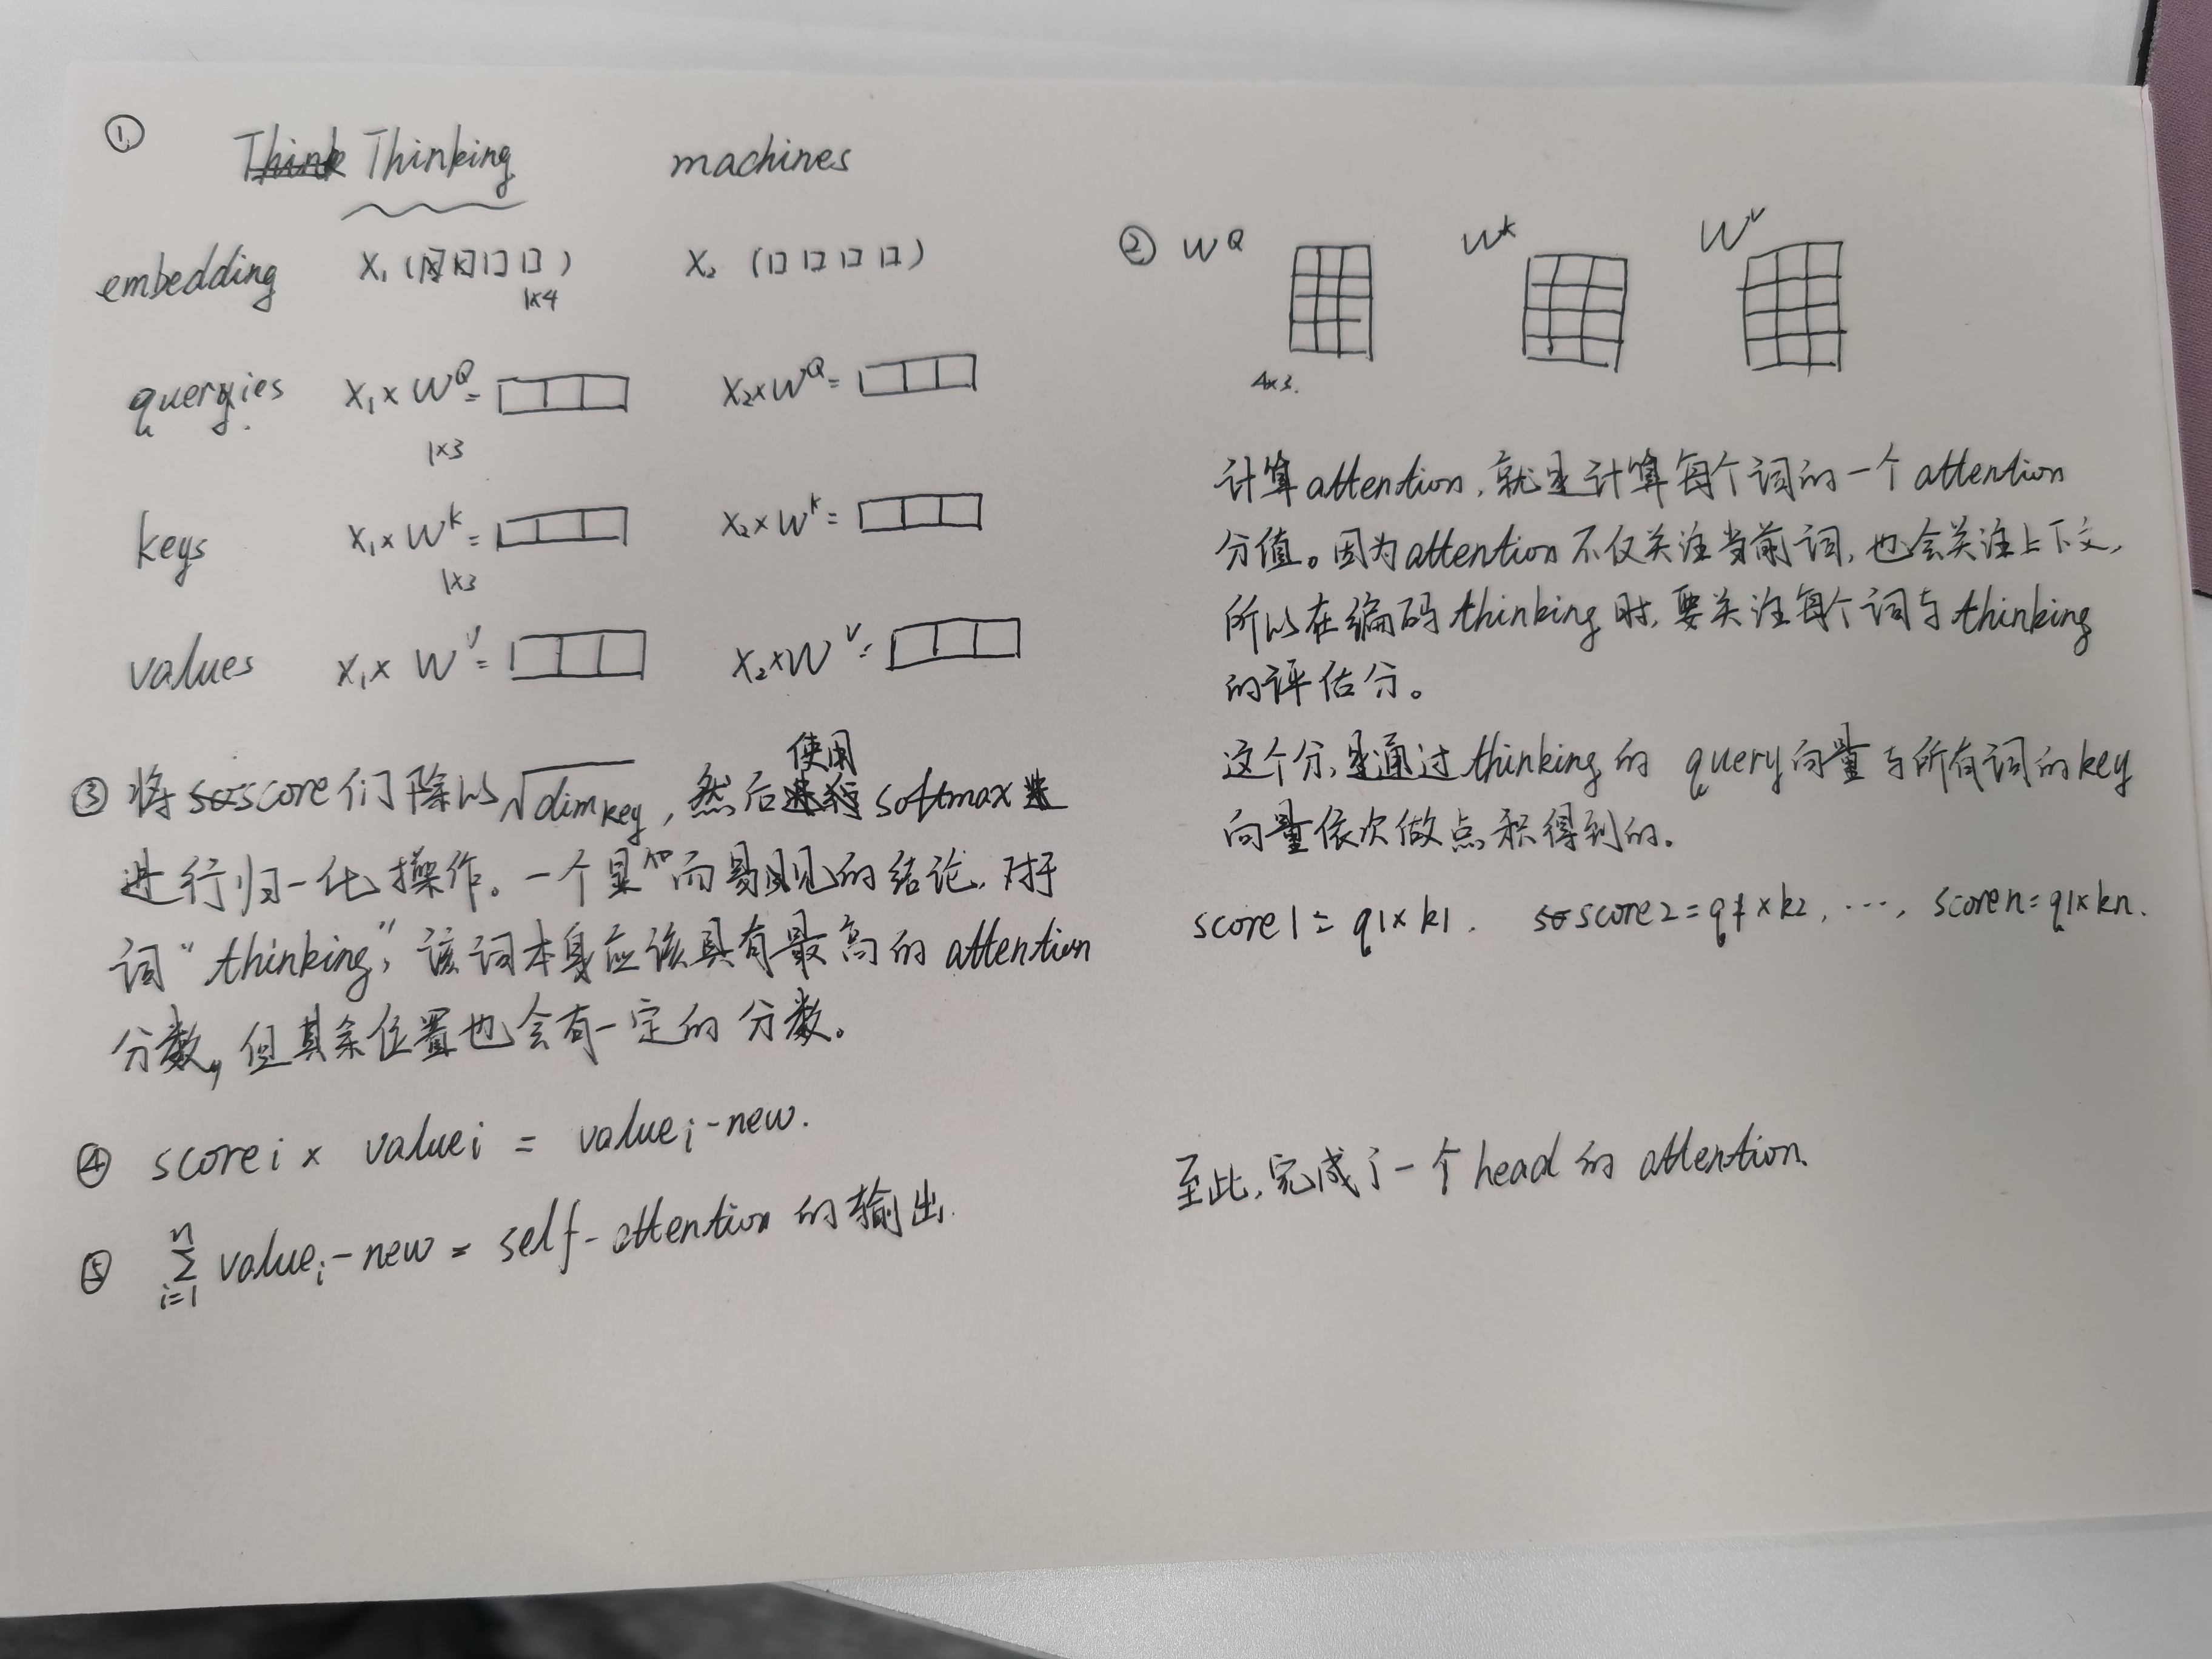 ①
Think Thinking machines
embedding X₁ (口口口口) X₂ (口口口口)
1×4
queryies X₁ × W^Q = X₂×W^Q =
1×3
keys X₁ × W^K = X₂ × W^K =
1×3
values X₁ × W^V = X₂×W^V =
② W^Q W^K W^V
4×3.
计算attention,就是计算每个词的一个attention
分值。因为attention不仅关注当前词,也会关注上下文,
所以在编码thinking时,要关注每个词与thinking
的评估分。
这个分,是通过thinking的 query向量与所有词的key
向量依次做点积得到的。
score1 = q1×k1, so score2 = q1×k2, ..., scoren = q1×kn.
③ 将 so score们除以√dim_key, 然后进行使用softmax进
进行归一化操作。一个显而易见的结论,对于
词“thinking”,该词本身应该具有最高的attention
分数,但其余位置也会有一定的分数。
④ scorei × valuei = valuei-new.
⑤ ∑ⁿᵢ₌₁ valueᵢ-new = self-attention的输出.
至此,完成了一个head的attention.